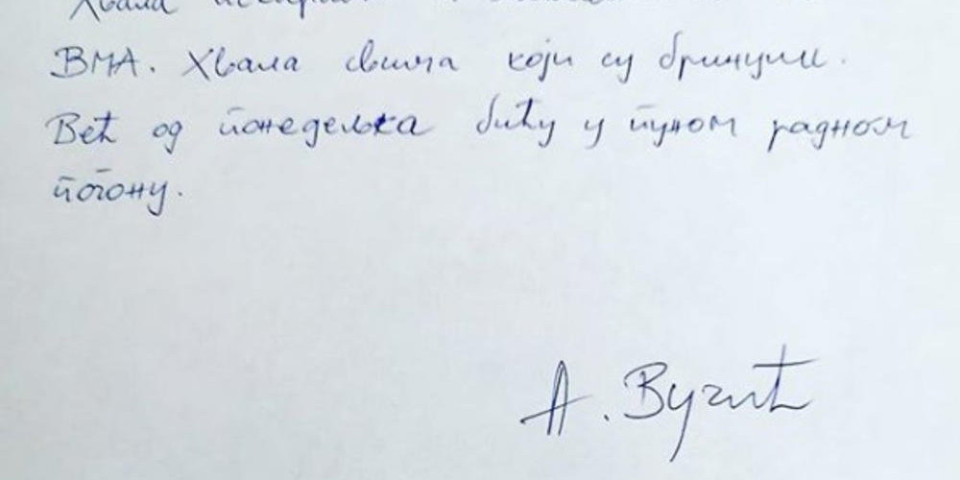 Хвала
ВМА. Хвала свима који су бринули.
Већ од понедељка бићу у пуном радном
погону.
А. Вучић